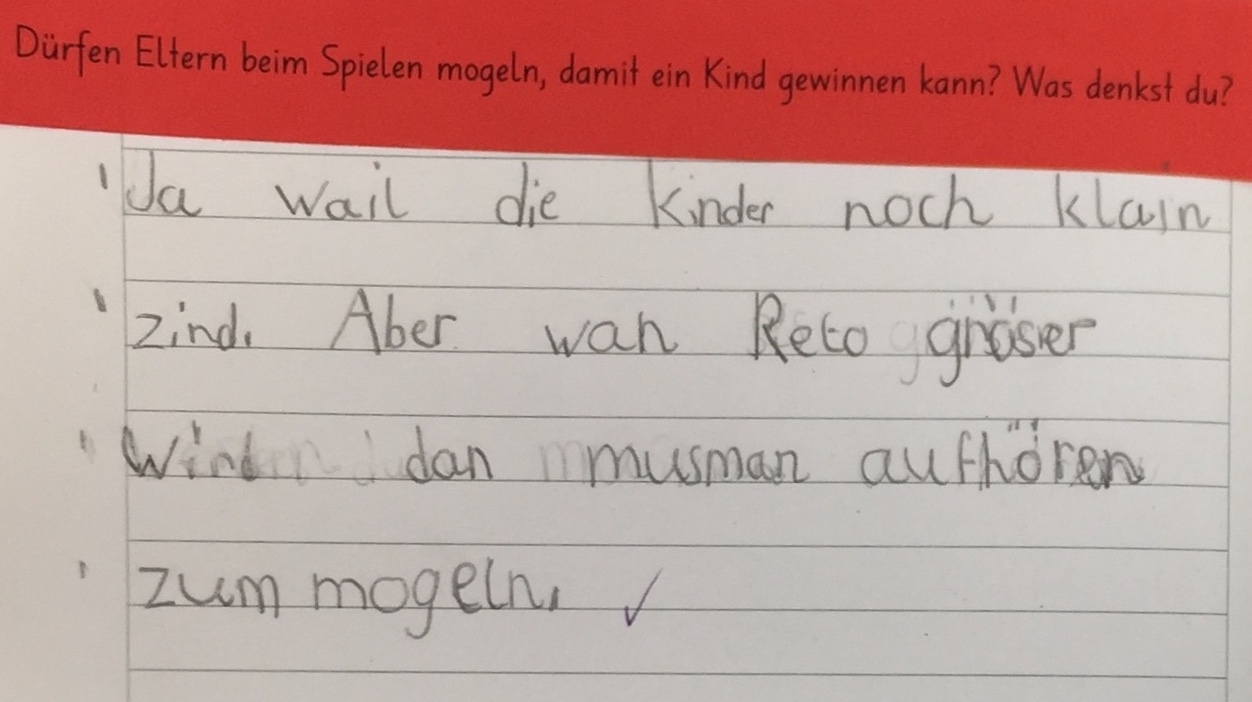 Dürfen Eltern beim Spielen mogeln, damit ein Kind gewinnen kann? Was denkst du?
Ja wail die kinder noch klain
zind. Aber wan Reto gröser
wird dan musman aufhören
zum mogeln.